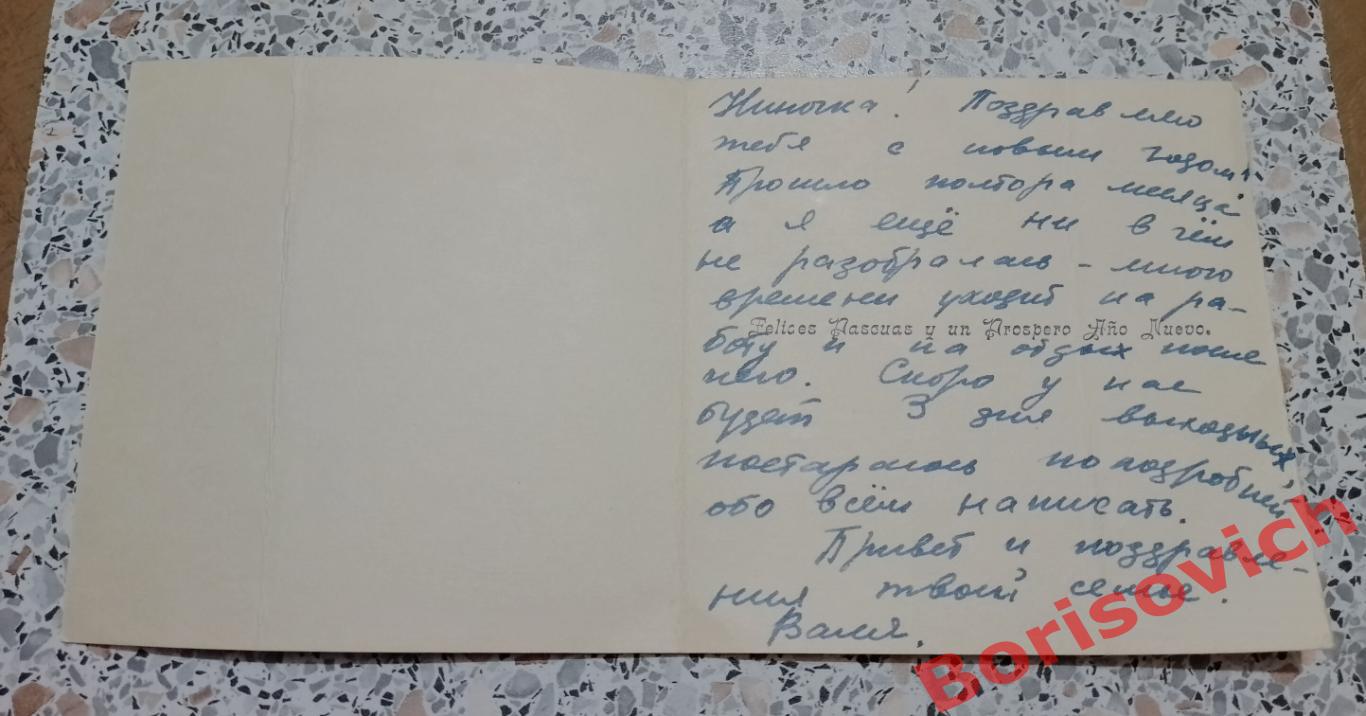 Ниночка! Поздравляю
тебя с новым годом!
Прошло полтора месяца
а я ещё ни в чём
не разобралась - много
времени уходит на ра-
Felices Pascuas y un Prospero Año Nuevo.
боту и на отдых после
него. Скоро у нас
будет 3 дня выходных,
постараюсь поподробней
обо всём написать.
Привет и поздравле-
ния твоей семье.
Валя.
Borisovich